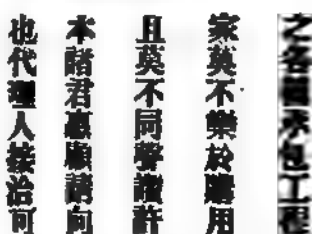 之各種承包工程
家莫不樂於購用
且莫不同聲讚許
本諸君惠顧請向
也代理人接洽可